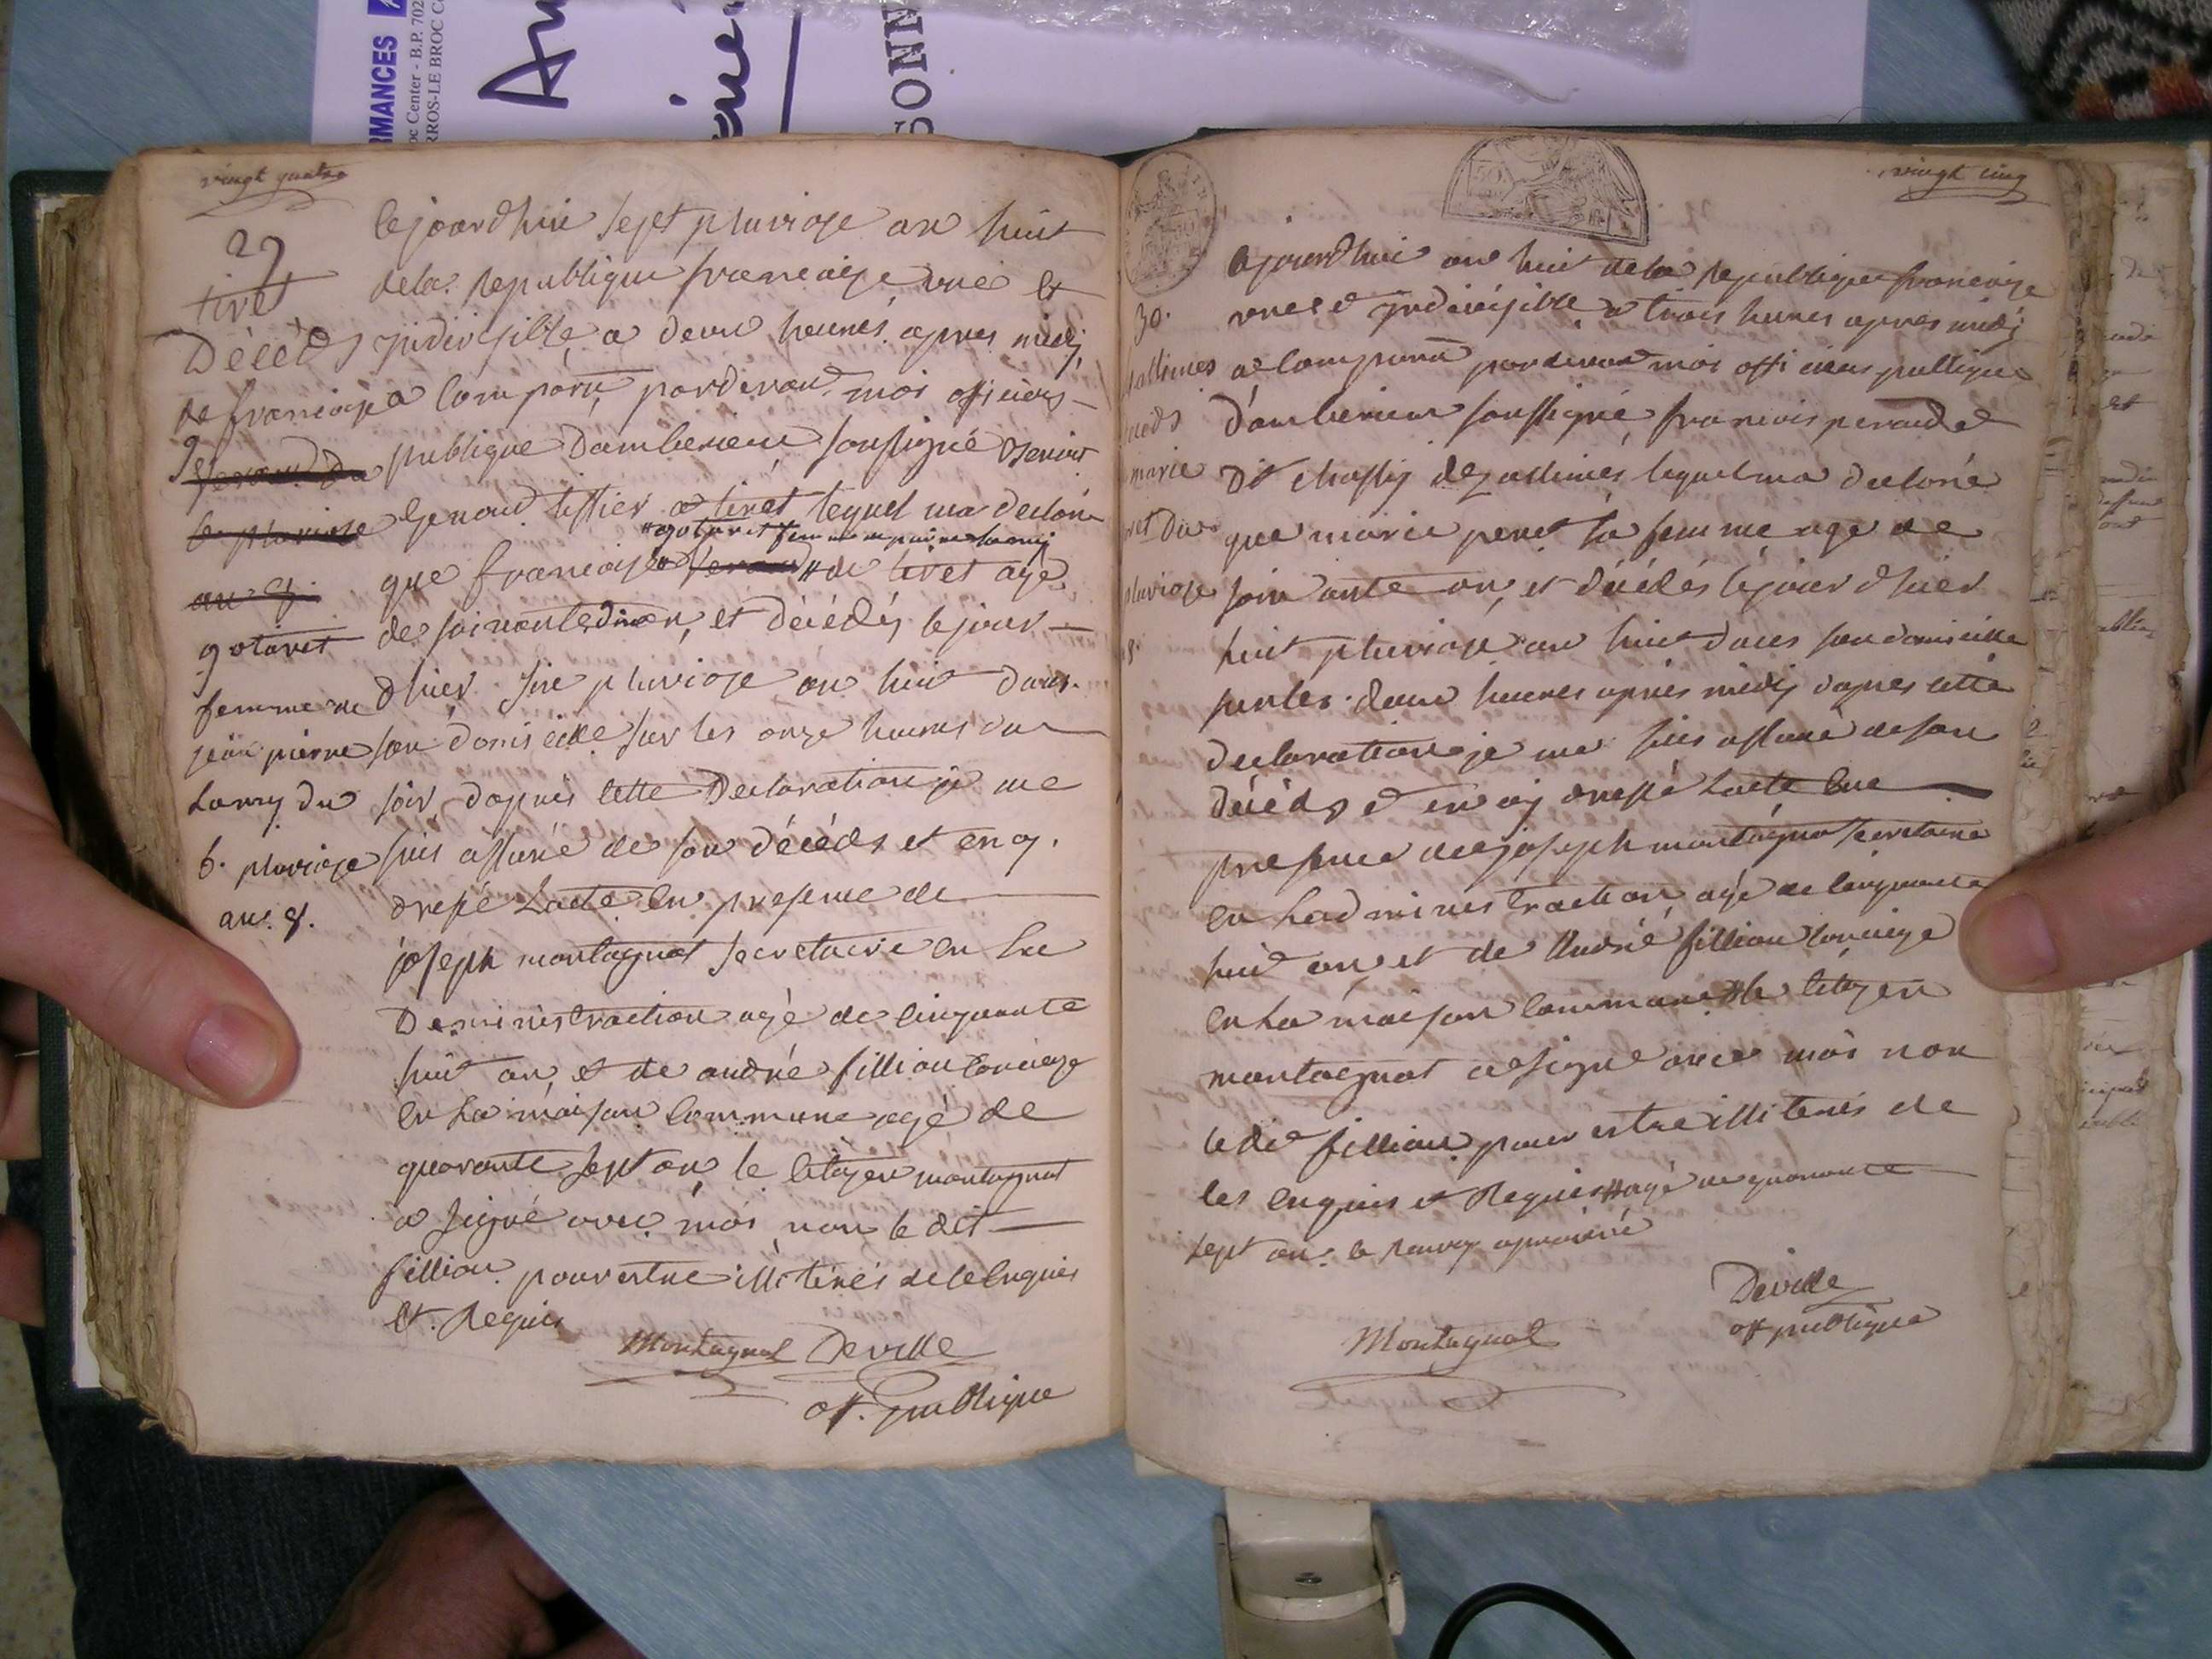 RMANCES
oc Center - B.P. 702
RROS-LE BROC C
An
SONN
vingt quatre
29
tiret
Décéds
de françoise
gotaret
femme de
jean pierre
Lamy du
6. pluviose
an. 8.
Cejourdhui sept pluviose an huit
dela Republique francaise une et
jndivisible a deux heures apres midy
a Comparu pardevant moi officiers
publique Damberieu soussigné
tissier a tiret lequel ma declaré
que francoise de tiret agé
de soixante dix an, et décédés le jour
dhier size pluviose an huit dans
son domicille sur les onze heures du
soir, dapres cette Declaration je me
suis assuré de son décéds et en ay
dressé Lacte en presence de
joseph montagnat secretaire en La
Deministraction agé de cinquante
huit an, et de andré fillion concierge
en La maison Commune agé de
quarante sept an, le Citoyen montagnat
a signé avec moi non le dit
fillion pour estre illiterés de ce Enquis
et Requis
Montagnat Deville
off. publique
vingt cinq
30.
vattines
marie
ret du
pluviose
8.
Cejourdhui an huit dela Republique francoise
une et jndivisible a trois heures apres midy
a Comparu pardevant moi officiers publique
d'amberieu soussigné francois
dit lequel ma declaré
que marie peret sa femme age de
soixante an, et décédés le jour dhier
huit pluviose an huit dans son domicille
sur les deux heures apres midy dapres cette
declaration je me suis assuré de son
décéds et en ay dressé Lacte En
presence de joseph montagnat secretaire
en Ladministraction agé de cinquante
huit an, et de André fillion concierge
en La maison Commune # le Citoyen
montagnat a signé avec moi non
le dit fillion pour estre illiterés de
les enquis et Requis # agé de quarante
sept an. le Renvoy aprouvé
Deville
off publique
Montagnat